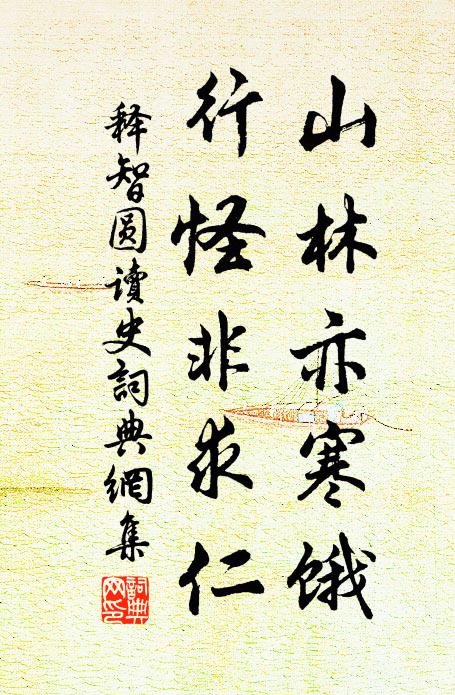 山林亦寒饿
行怪非求仁
释智圆读史词典網集
詞典
网印